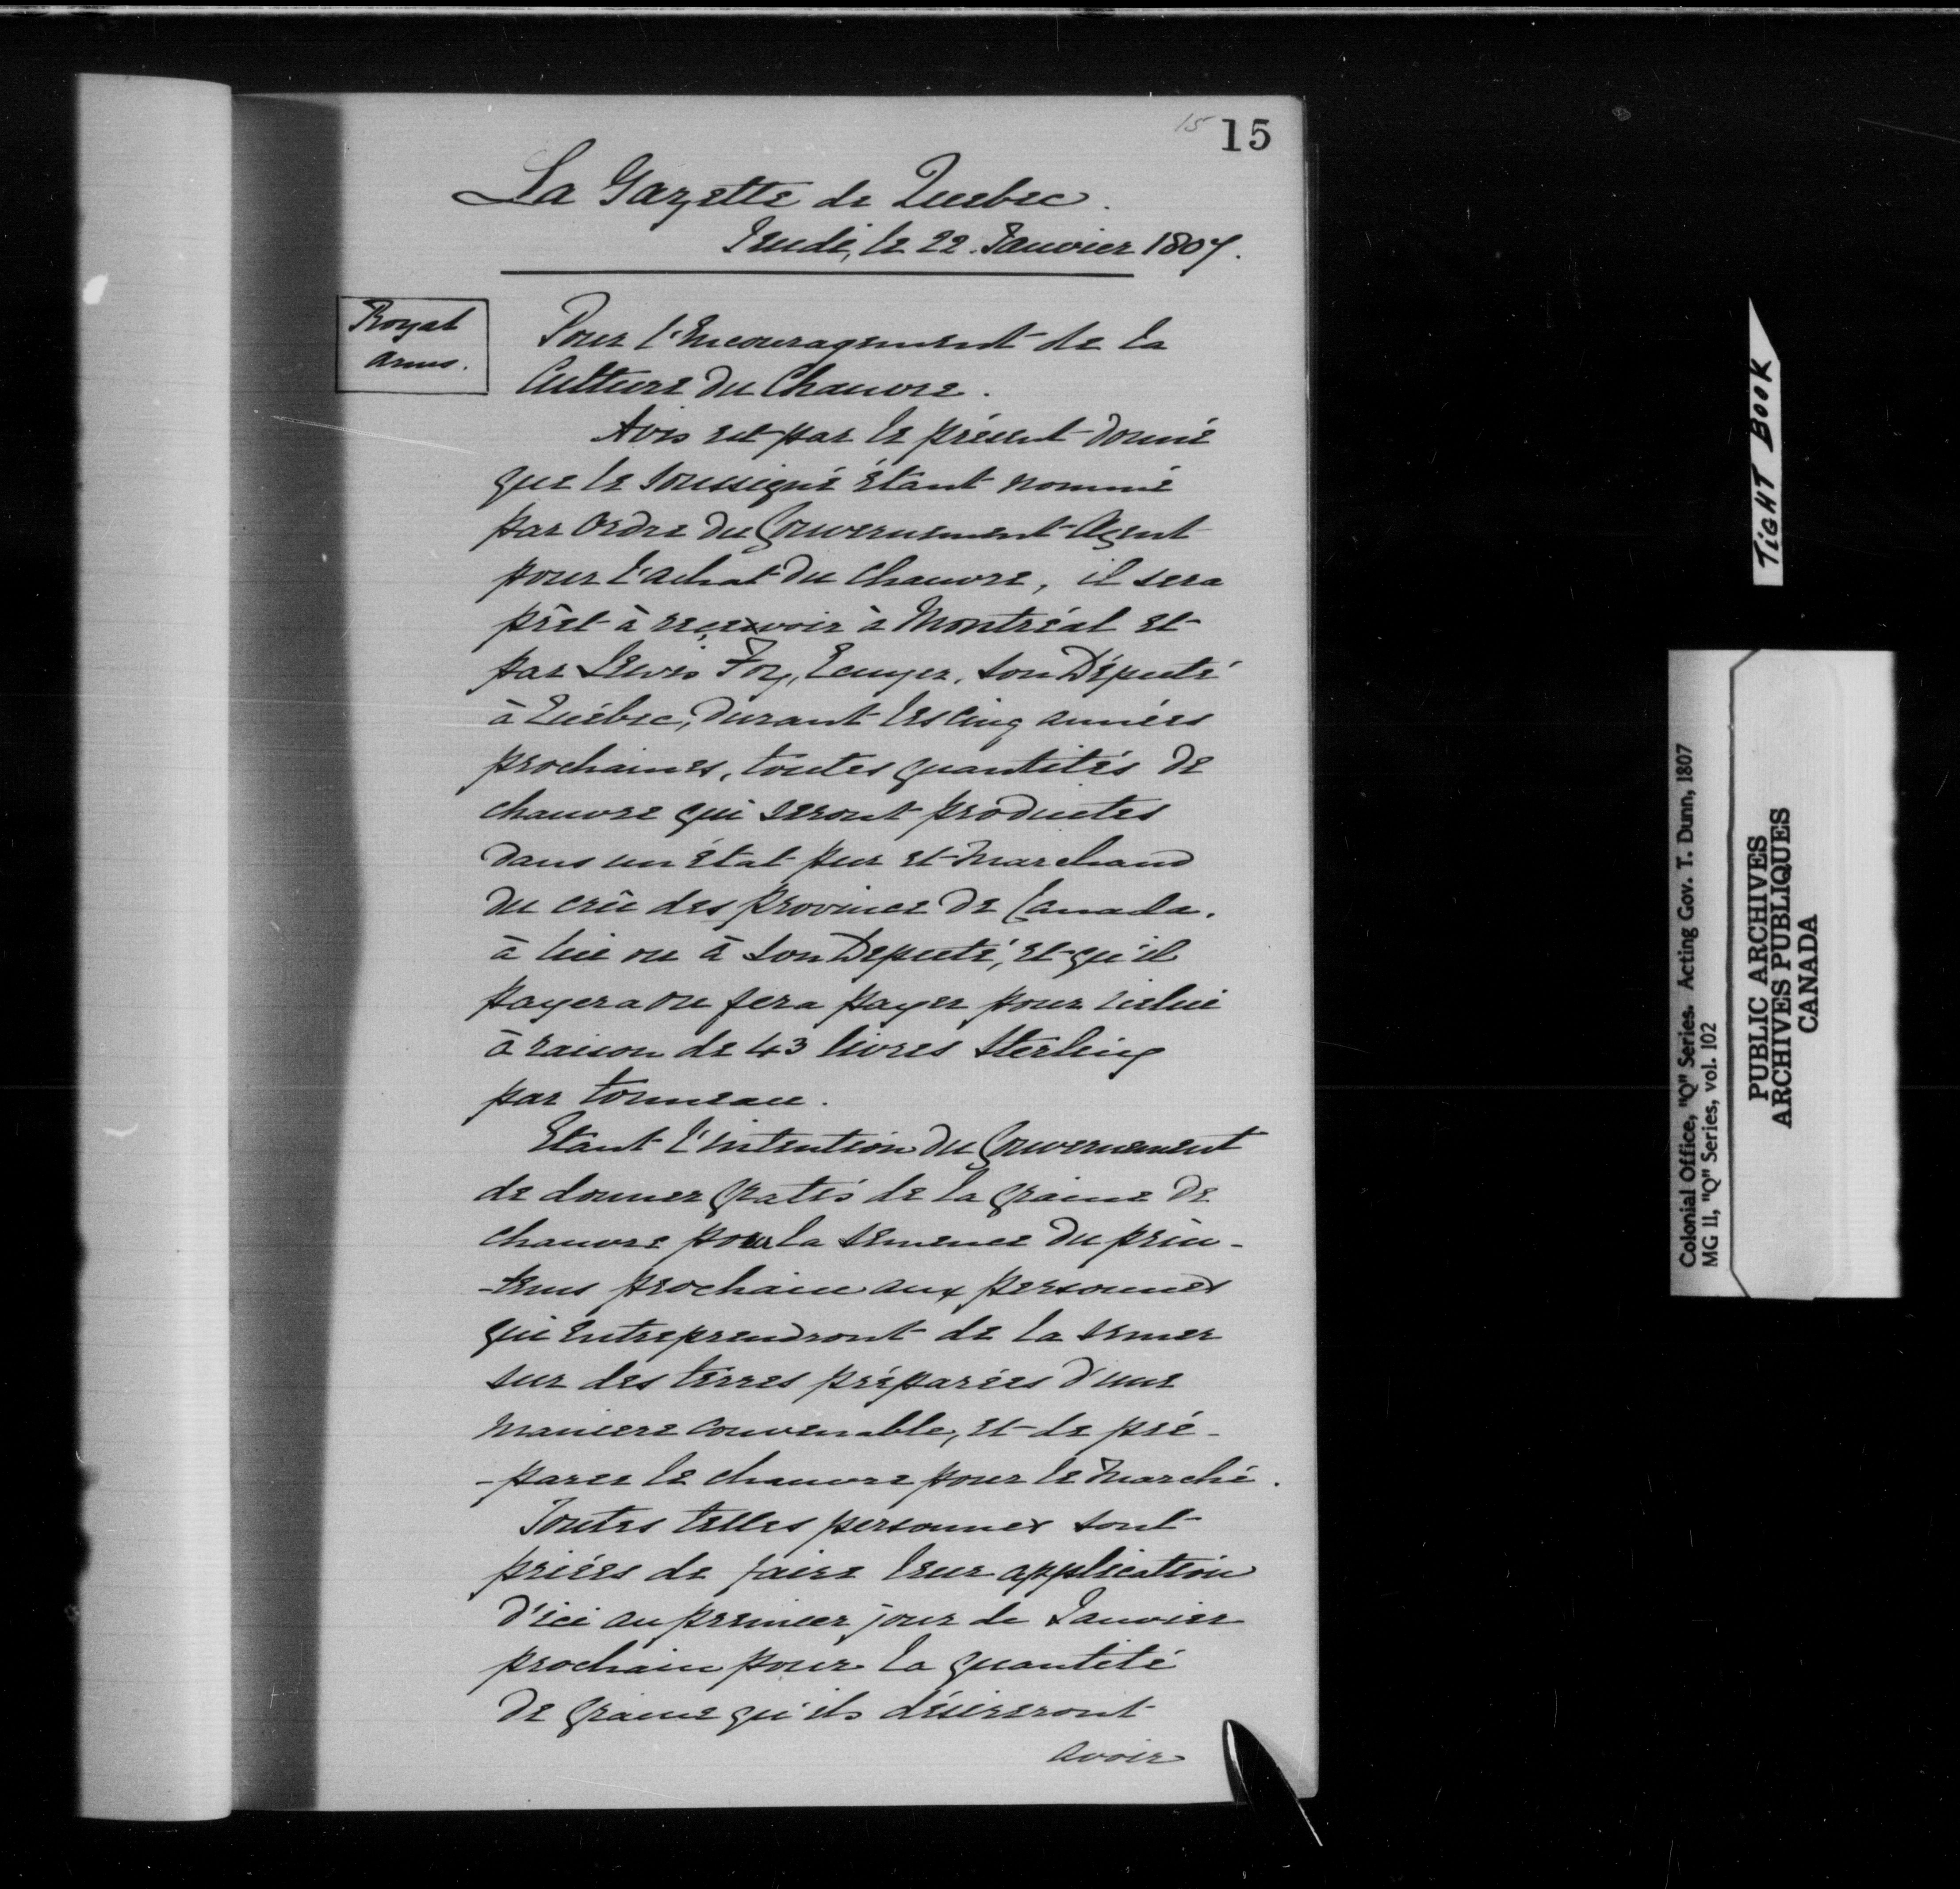 15 15
La Gazette de Quebec.
Jeudi, le 22. Janvier 1807.
Royal
Arms.
Pour l'Encouragement de la
Culture du Chanvre.
Avis est par le présent donné
que le Soussigné étant nommé
par Ordre du Gouvernement Agent
pour l'achat du chanvre, il sera
prêt à recevoir à Montréal et
par Lewis Foy, Ecuyer, son Député
à Québec, durant les cinq années
prochaines, toutes quantités de
chanvre qui seront produites
dans un état pur et Marchand
du crû des province de Canada.
à lui ou à son Deputé, et qu'il
payera ou fera payer pour icelui
à raison de 43 livres Sterling
par tonneau.
Etant l'intention du Gouvernement
de donner gratis de la graine de
chanvre pour la semence du prin-
-tems prochain aux personnes
qui entreprendront de la semer
sur des terres préparées d'une
maniere convenable, et de pré-
-parer le chanvre pour le Marché.
Toutes telles personnes sont
priées de faire leur application
d'ici au premier jour de Janvier
prochain pour la quantité
de graine qu'ils désireront
avoir
TIGHT BOOK
Colonial Office, "Q" Series. Acting Gov. T. Dunn, 1807
MG 11, "Q" Series, vol. 102
PUBLIC ARCHIVES
ARCHIVES PUBLIQUES
CANADA